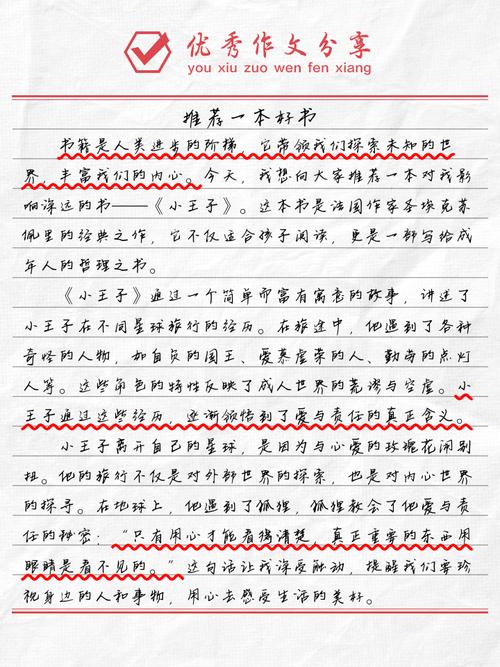 优秀作文分享
you xiu zuo wen fen xiang
推荐一本好书
书籍是人类进步的阶梯，它带领我们探索未知的世
界，丰富我们的内心。今天，我想向大家推荐一本对我影
响深远的书——《小王子》。这本书是法国作家圣埃克苏
佩里的经典之作，它不仅适合孩子阅读，更是一部写给成
年人的哲理之书。
《小王子》通过一个简单而富有寓意的故事，讲述了
小王子在不同星球旅行的经历。在旅途中，他遇到了各种
奇怪的人物，如自负的国王、爱慕虚荣的人、勤劳的点灯
人等。这些角色的特性反映了成人世界的荒谬与空虚。小
王子通过这些经历，逐渐领悟到了爱与责任的真正含义。
小王子离开自己的星球，是因为与心爱的玫瑰花闹别
扭。他的旅行不仅是对外部世界的探索，也是对内心世界
的探寻。在地球上，他遇到了狐狸，狐狸教会了他爱与责
任的秘密：“只有用心才能看得清楚，真正重要的东西用
眼睛是看不见的。”这句话让我深受触动，提醒我们要珍
视身边的人和事物，用心去感受生活的美好。